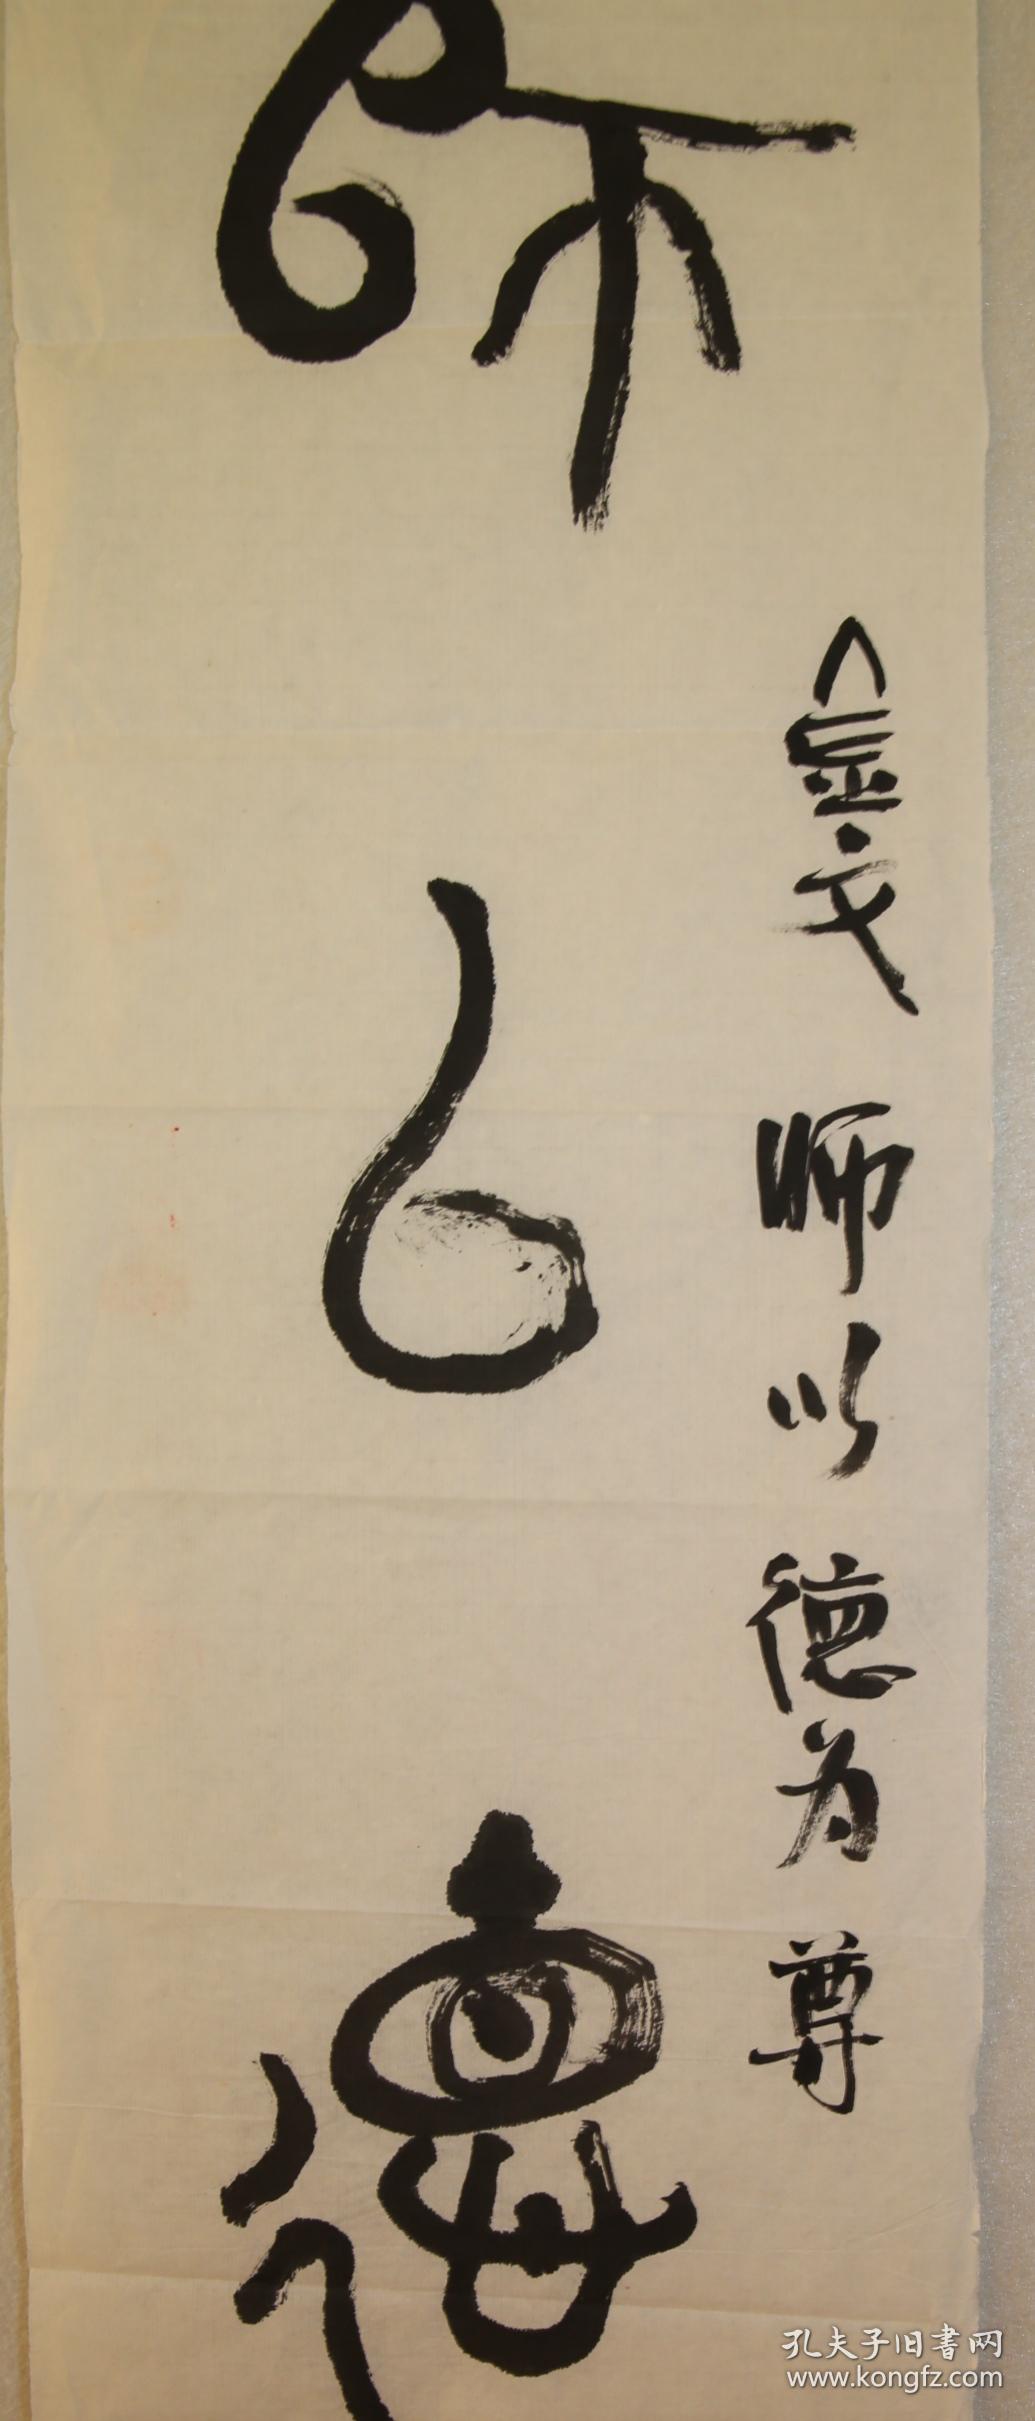 金文 师以德为尊
师以德
孔夫子旧書网
www.kongfz.com